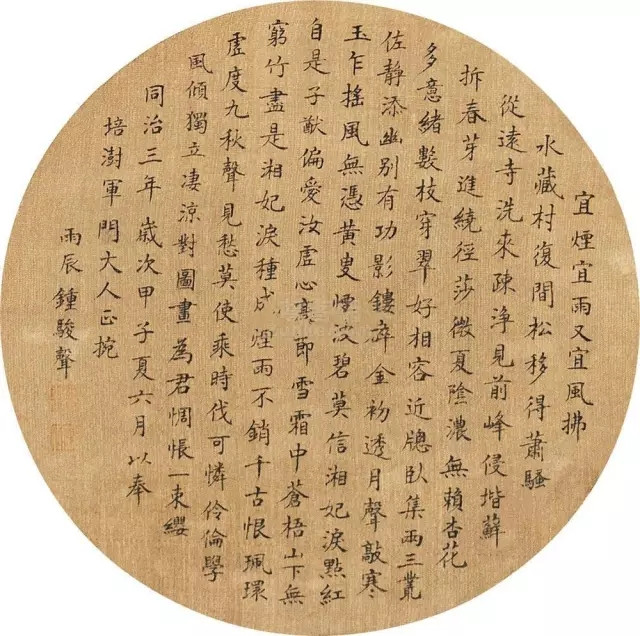 宜煙宜雨又宜風拂
水藏村復間松移得蕭騷
從遠寺洗來疎淨見前峰侵堦蘚
拆春芽迸繞徑莎微夏陰濃無賴杏花
多意緒數枝穿翠好相容近牕臥集雨三叢
佐靜添幽別有功影鏤碎金初透月聲敲寒
玉乍搖風無憑黃叟煙波碧莫信湘妃淚點紅
自是子猷偏愛汝虛心高節雪霜中蒼梧山下無
窮竹盡是湘妃淚種成煙雨不銷千古恨珮環
虛度九秋聲見愁莫使乘時伐可憐伶倫學
風傾獨立淒涼對圖畫為君惆悵一束纓
同治三年歲次甲子夏六月以奉
培澍軍門大人正
雨辰鍾駿聲